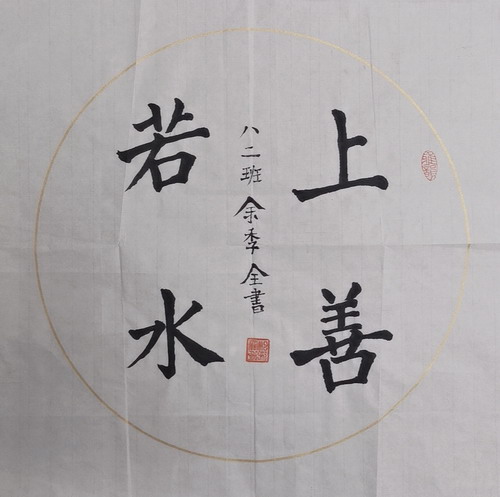 上善
若水
八二班余季全書